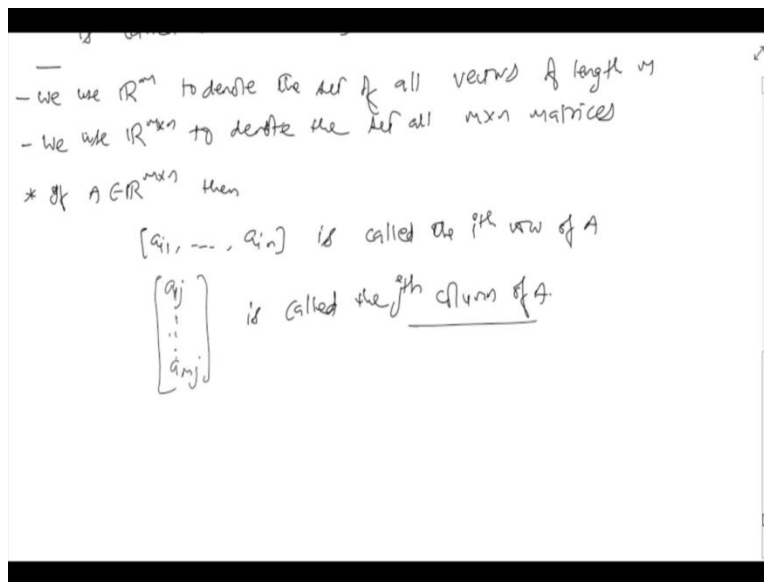 is called
- We use ℝᵐ to denote the set of all vectors of length m
- We use ℝᵐˣⁿ to denote the set all m×n matrices
* If A ∈ ℝᵐˣⁿ then
[aᵢ₁, ----, aᵢₙ] is called the iᵗʰ row of A
[a₁ⱼ ⋮ aₘⱼ] is called the jᵗʰ column of A.